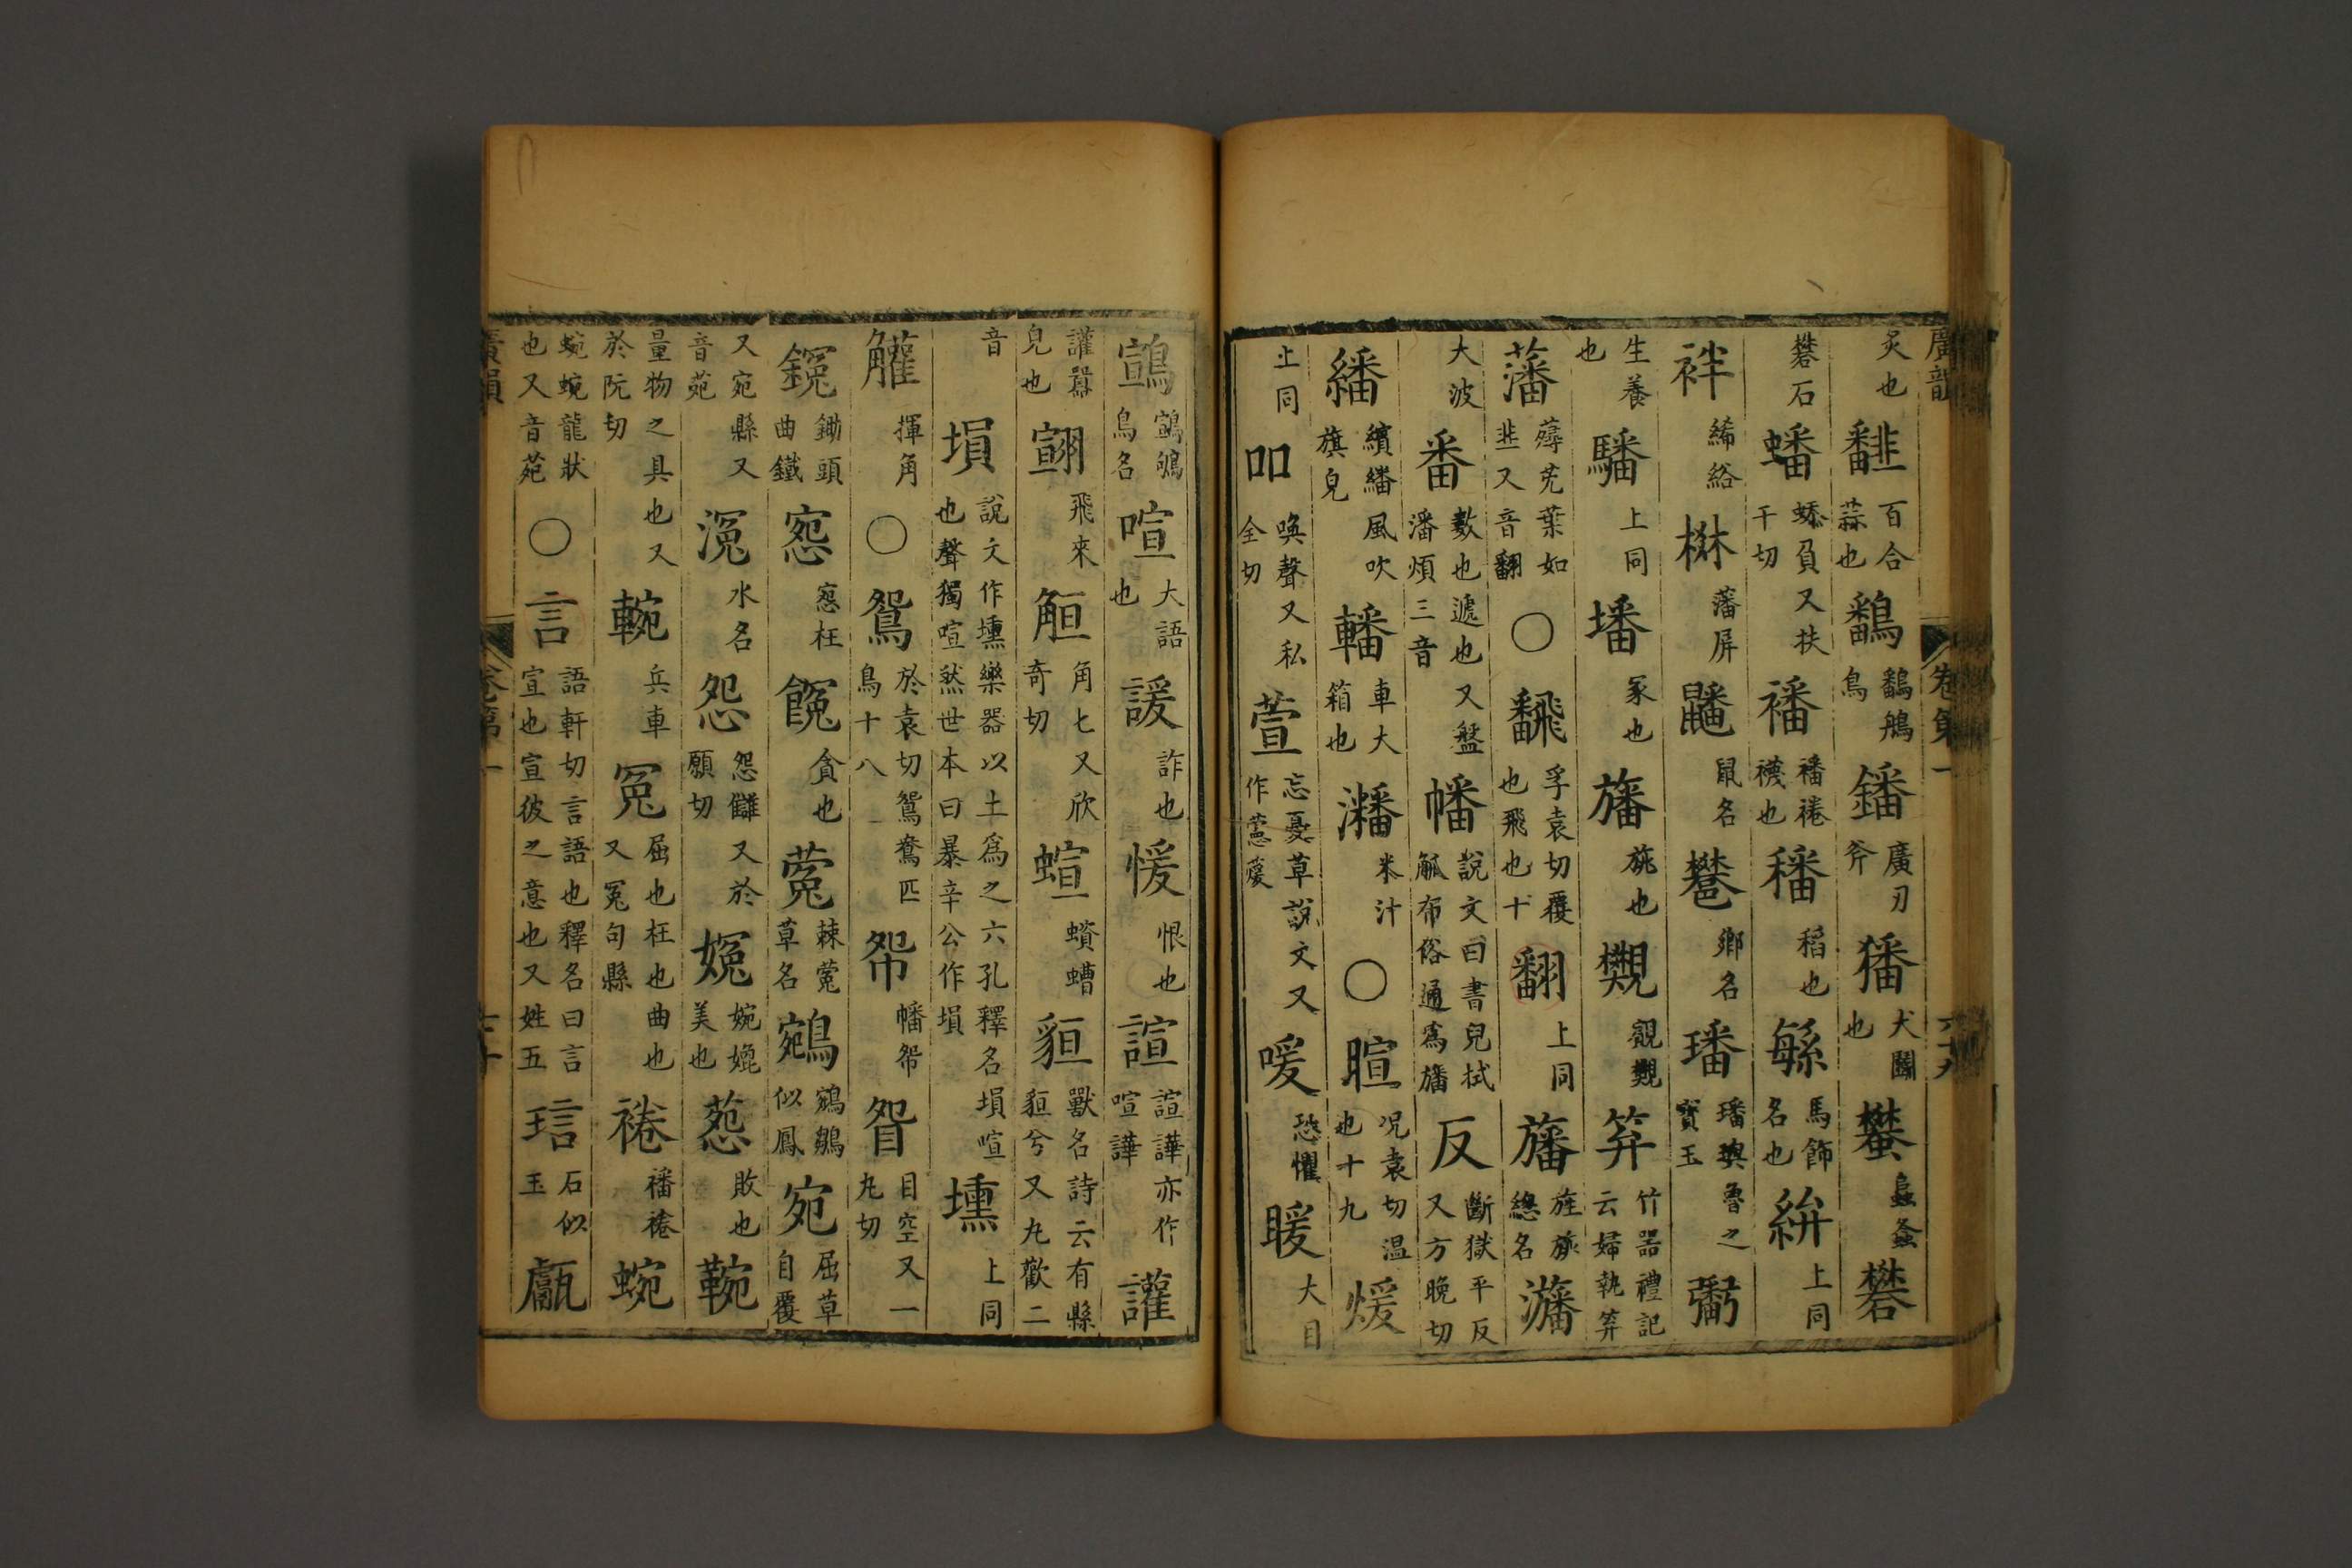 廣韻 卷第一
炙也 䪤 百合蒜也 鷭 鷭鴅鳥 鐇 廣刃斧 獦 犬鬬也 蠜 蟲螽 礬
礬石 蟠 蟠負又扶干切 襎 襎裷襪也 䆺 稻也 䋣 馬飾名也 絣 上同
袢 絺綌 棥 藩屏 鼶 鼠名 䣊 鄉名 璠 璠璵魯之寶玉 䰀
生養也 驓 上同 墦 冢也 旛 旄也 䙪 䙪觀 笲 竹器禮記云婦執笲
藩 薅茺葉如韭又音翻 〇 飜 孚袁切覆也飛也十 翻 上同 旛 旌旂總名 灊
大波 番 數也遞也又盤潘煩三音 幡 說文曰書兒拭觚布俗通為旛 反 斷獄平反又方晚切
繙 繽繙風吹旗皃 轓 車大箱也 潘 米汁 〇 暄 況袁切溫也十九 煖
上同 吅 喚聲又私全切 萱 忘憂草說文又作藼蕿 㗇 恐懼 暖 大目
鶱 鶱鴂鳥名 喧 大語也 諼 詐也 愋 恨也 諠 諠譁亦作喧譁 讙
讙嚻皃也 翧 飛來 䚙 角匕又欣奇切 蝖 蠀螬 貆 獸名詩云有縣貆兮又丸歡二
音 塤 說文作壎樂器以土為之六孔釋名塤喧也聲獨喧然世本曰暴辛公作塤 壎 上同
䚭 揮角 〇 鴛 於袁切鴛鴦匹鳥十八 帤 幡帤 眢 目空又一丸切
鋺 鋤頭曲鐵 窓 窓枉 䭴 貪也 蒬 棘蒬草名 鵷 鵷鶵似鳳 宛 屈草自覆
又宛縣又音菀 涴 水名 怨 怨讎又於願切 婏 婉嬎美也 葾 敗也 鞔
量物之具也又於阮切 䡝 兵車 冤 屈也枉也曲也又冤句縣 裷 襎裷 蜿
蜿蜿龍狀也又音菀 〇 言 語軒切言語也釋名曰言宣也宣彼之意也又姓五 琂 石似玉 甗
廣韻 卷第一